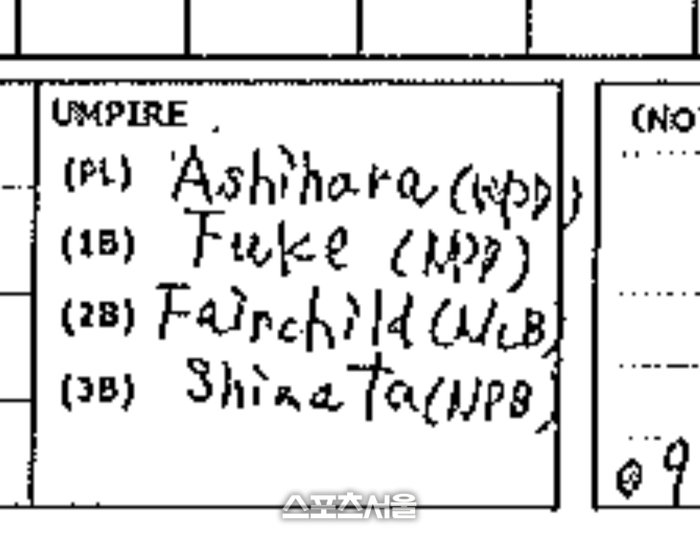 UMPIRE
(NO
(PL) Ashihara (NPB)
(1B) Fuke (NPB)
(2B) Fairchild (MLB)
(3B) Shimata (NPB)
9
스포츠서울